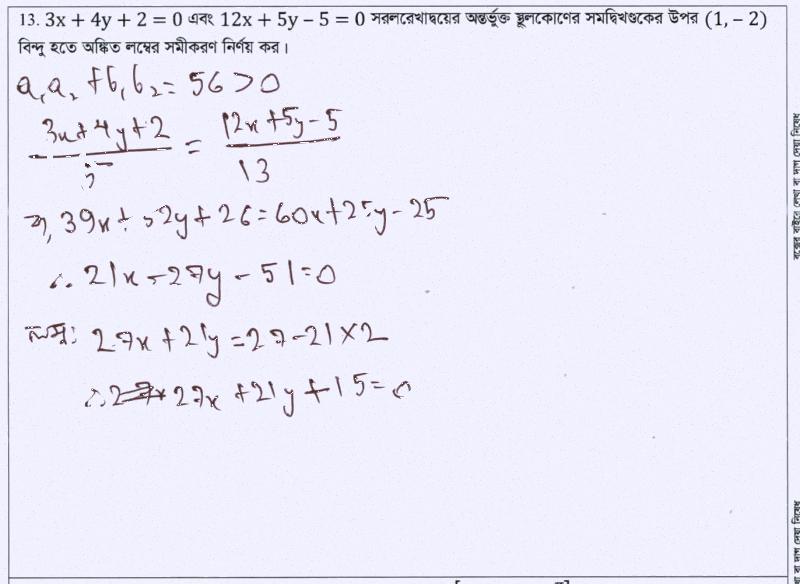 13. 3x + 4y + 2 = 0 এবং 12x + 5y − 5 = 0 সরলরেখাদ্বয়ের অন্তর্ভুক্ত স্থূলকোণের সমদ্বিখণ্ডকের উপর (1, − 2)
বিন্দু হতে অঙ্কিত লম্বের সমীকরণ নির্ণয় কর।
a₁a₂ + b₁b₂ = 56 > 0
3x + 4y + 2 / 5 = 12x + 5y − 5 / 13
বা, 39x + 52y + 26 = 60x + 25y − 25
∴ 21x − 27y − 51 = 0
লম্ব: 27x + 21y = 27 − 21 × 2
∴ 27x + 21y + 15 = 0
বক্সের বাইরে লেখা বা দাগ দেয়া নিষেধ
বা দাগ দেয়া নিষেধ